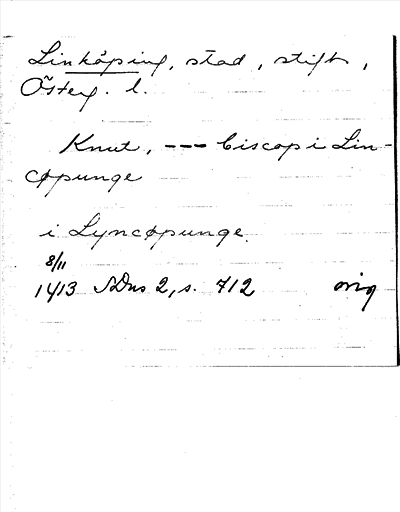 Linköping, stad, stift,
Österg. l.
Knut, --- biscop i Lin-
cøpunge
i Lyncøpunge.
8/11
1413 SDns 2, s. 712 orig